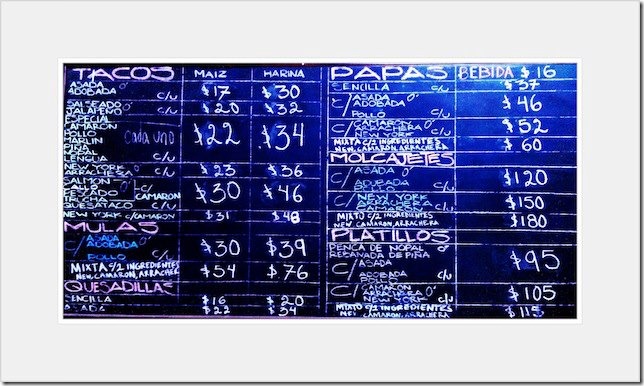 TACOS MAIZ HARINA
ASADA Ó
ADOBADA C/U $17 $30
SALSEADO Ó
JALAPEÑO C/U $20 $32
ESPECIAL
CAMARON
POLLO
MARLIN
PIÑA
LENGUA C/U
cada uno $22 $34
NEW YORK Ó
ARRACHERA C/U $23 $36
SALMON
CALLO Ó
PESCADO
TRUCHA
QUESATACO C/U
C/ CAMARON $30 $46
NEW YORK C/CAMARON $31 $48
MULAS
C/ ASADA Ó
ADOBADA
POLLO C/U $30 $39
MIXTA C/2 INGREDIENTES
NEW, CAMARON, ARRACHERA $54 $76
QUESADILLAS
SENCILLA $16 $20
ASADA $22 $34
PAPAS BEBIDA $16
SENCILLA $37
C/ ASADA Ó
ADOBADA
POLLO C/U $46
C/ CAMARON Ó
ARRACHERA
NEW YORK C/U $52
MIXTA C/2 INGREDIENTES
NEW, CAMARON, ARRACHERA $60
MOLCAJETES
C/ ASADA Ó
ADOBADA
POLLO C/U $120
C/ NEW YORK
ARRACHERA Ó
CAMARON C/U $150
MIXTO C/2 INGREDIENTES
NEW, CAMARON, ARRACHERA $180
PLATILLOS
PENCA DE NOPAL Ó
REBANADA DE PIÑA
C/ ASADA
ADOBADA
POLLO C/U $95
C/ CAMARON Ó
ARRACHERA
NEW YORK C/U $105
MIXTO C/2 INGREDIENTES
NEW, CAMARON, ARRACHERA $115